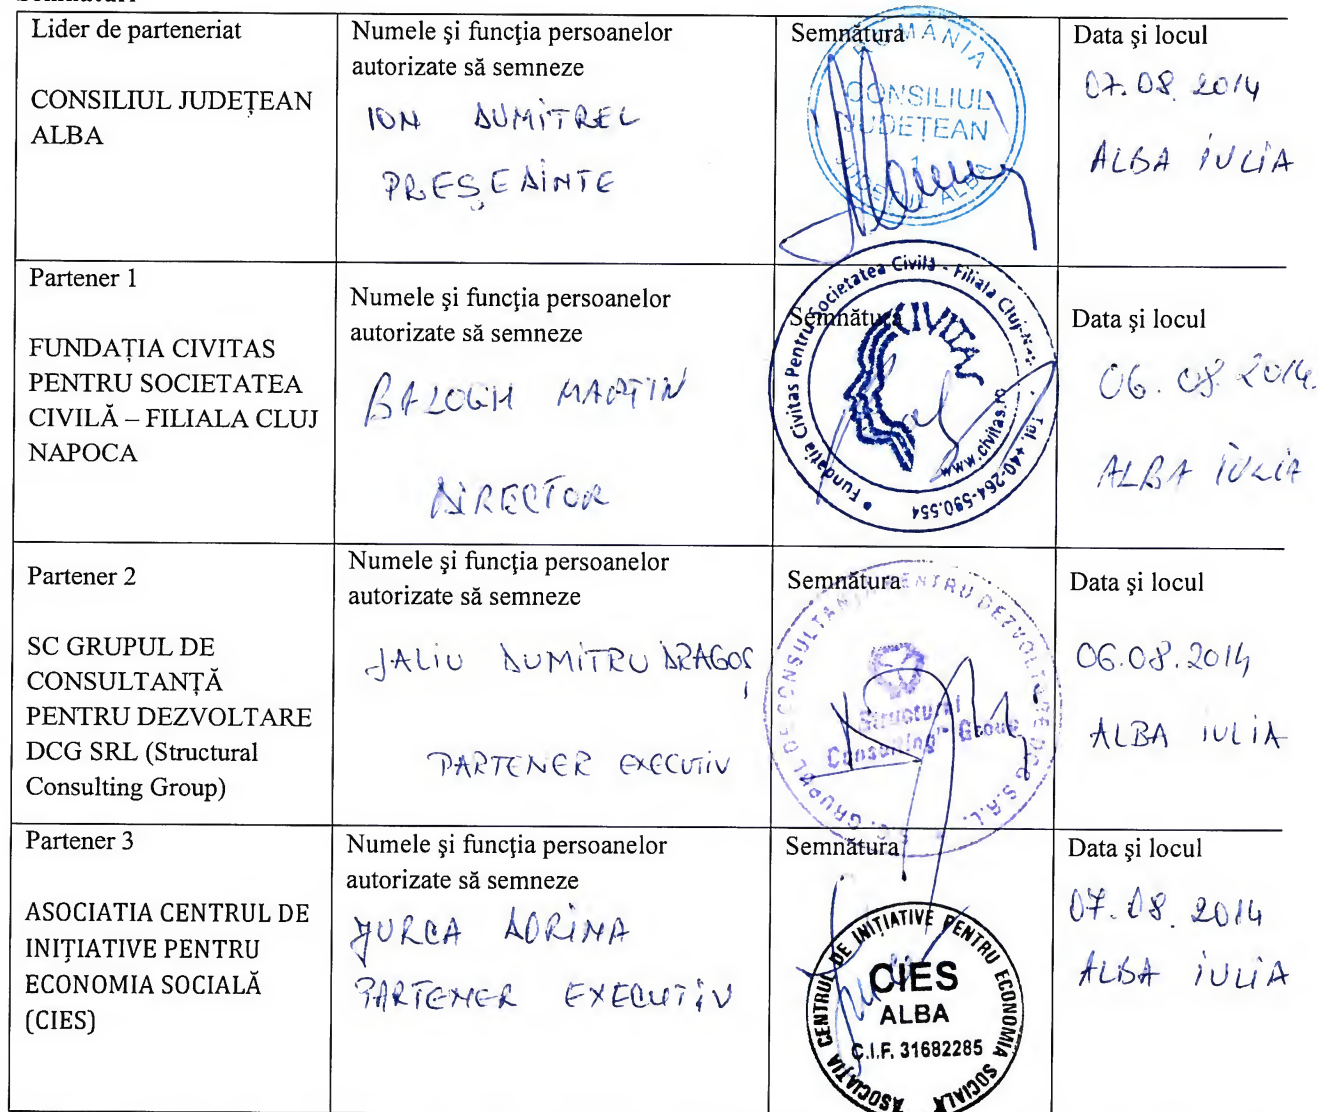 Lider de parteneriat
CONSILIUL JUDEȚEAN
ALBA
Numele şi funcţia persoanelor
autorizate să semneze
ION DUMITREL
PREȘEDINTE
Semnătura
ROMÂNIA
CONSILIUL
JUDEȚEAN
1
JUDEȚUL ALBA
Data şi locul
07.08.2014
ALBA IULIA
Partener 1
FUNDAȚIA CIVITAS
PENTRU SOCIETATEA
CIVILĂ – FILIALA CLUJ
NAPOCA
Numele şi funcţia persoanelor
autorizate să semneze
BALOGH MARTIN
DIRECTOR
Semnătura
Fundația Civitas Pentru Societatea Civilă - Filiala Cluj-N
Tel. +40-264-590.554
CIVITAS
www.civitas.ro
Data şi locul
06.08.2014.
ALBA IULIA
Partener 2
SC GRUPUL DE
CONSULTANȚĂ
PENTRU DEZVOLTARE
DCG SRL (Structural
Consulting Group)
Numele şi funcţia persoanelor
autorizate să semneze
JALIU DUMITRU DRAGOȘ
PARTENER EXECUTIV
Semnătura
S.C. GRUPUL DE CONSULTANȚĂ PENTRU DEZVOLTARE DCG S.R.L.
Structural
Consulting Group
Data şi locul
06.08.2014
ALBA IULIA
Partener 3
ASOCIATIA CENTRUL DE
INIȚIATIVE PENTRU
ECONOMIA SOCIALĂ
(CIES)
Numele şi funcţia persoanelor
autorizate să semneze
JURCA DORINA
PARTENER EXECUTIV
Semnătura
ASOCIAȚIA CENTRUL DE INIȚIATIVE PENTRU ECONOMIA SOCIALĂ
CIES
ALBA
C.I.F. 31682285
Data şi locul
07.08.2014
ALBA IULIA